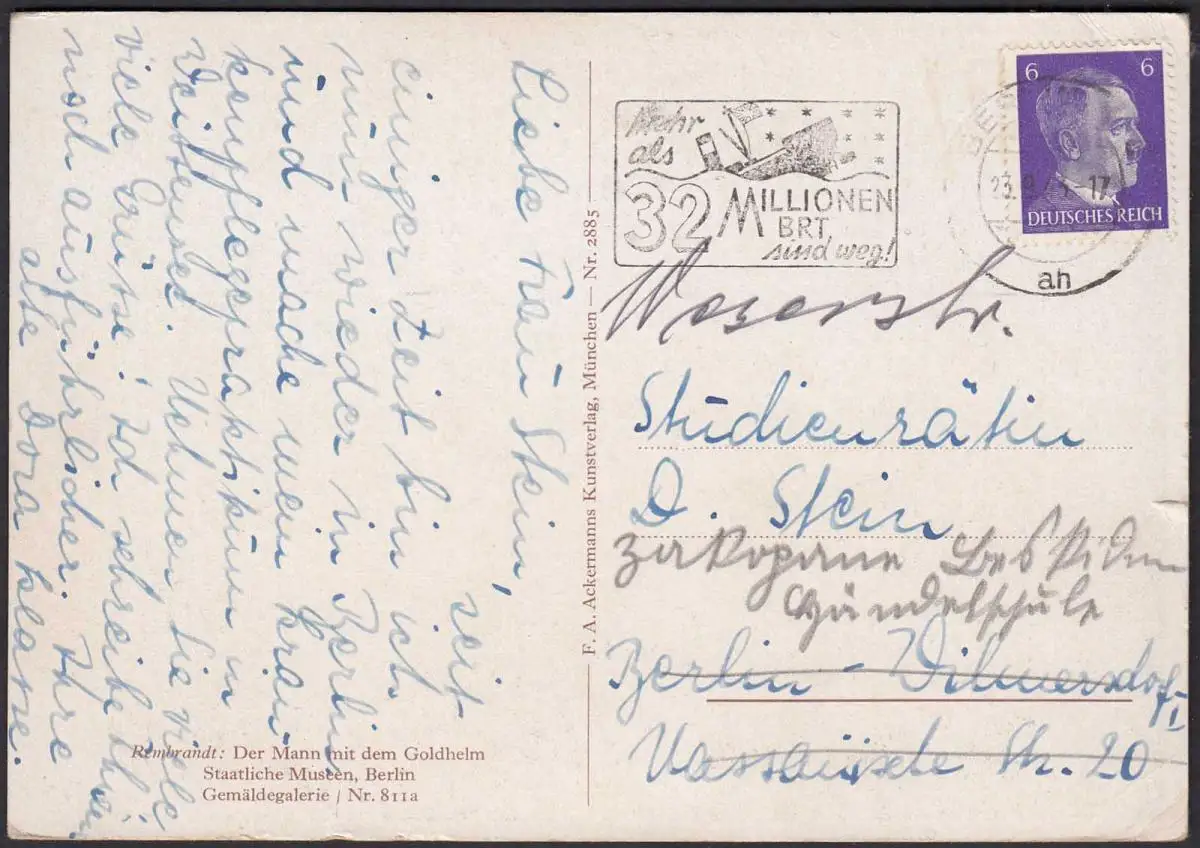 Liebe Frau Stein,
seit
einiger Zeit bin ich
nun wieder in Berlin
und mache mein Kran-
kenpflegepraktikum in
Weissensee. Nehmen Sie viele
viele Grüsse! Ich schreibe Ihnen
noch ausführlicher. Ihre
alte Dora
Rembrandt: Der Mann mit dem Goldhelm
Staatliche Museen, Berlin
Gemäldegalerie / Nr. 811a
F. A. Ackermanns Kunstverlag, München — Nr. 2885
Mehr
als
32 MILLIONEN
BRT
sind weg!
6 6
DEUTSCHES REICH
BERLIN
23.9.43-17
ah
Weserstr.
Studienrätin
D. Stein
Zakopane Beskiden
Händelschule
Berlin-Wilmersdorf
Nassauische Str. 20